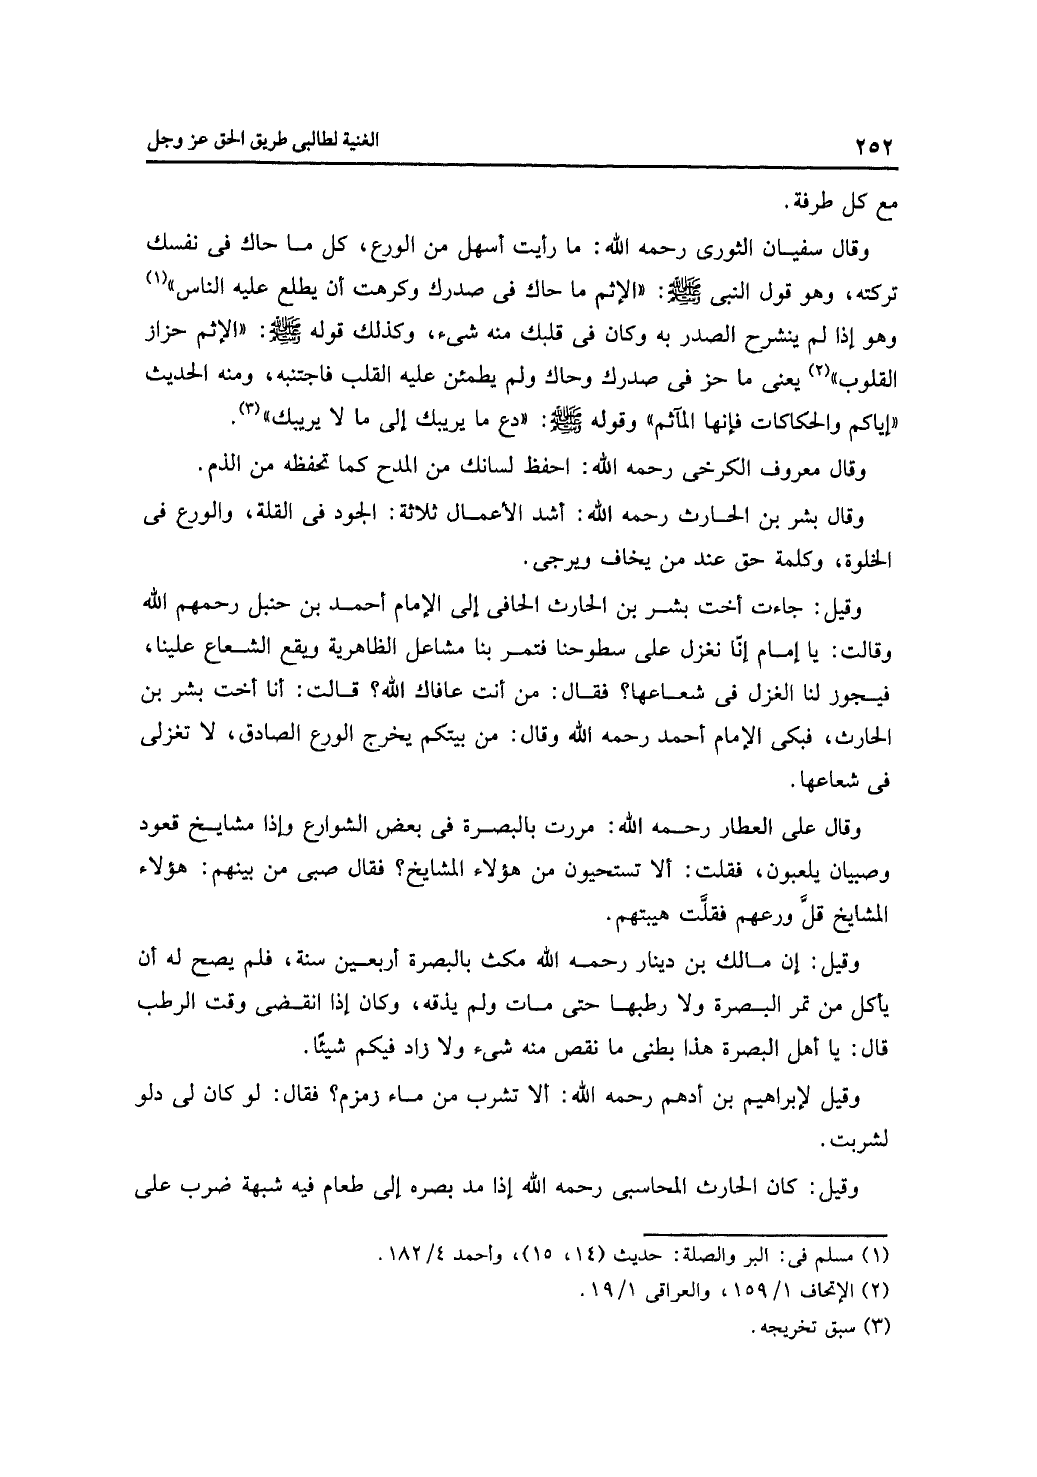 ٢٥٢
الغنية لطالبى طريق الحق عز وجل
مع كل طرفة.
وقال سفيان الثورى رحمه الله: ما رأيت أسهل من الورع، كل ما حاك فى نفسك
تركته، وهو قول النبى ﷺ: «الإثم ما حاك فى صدرك وكرهت أن يطلع عليه الناس»(١)
وهو إذا لم ينشرح الصدر به وكان فى قلبك منه شىء، وكذلك قوله ﷺ: «الإثم حزاز
القلوب»(٢) يعنى ما حز فى صدرك وحاك ولم يطمئن عليه القلب فاجتنبه، ومنه الحديث
«إياكم والحكاكات فإنها المآثم» وقوله ﷺ: «دع ما يريبك إلى ما لا يريبك»(٣).
وقال معروف الكرخى رحمه الله: احفظ لسانك من المدح كما تحفظه من الذم.
وقال بشر بن الحارث رحمه الله: أشد الأعمال ثلاثة: الجود فى القلة، والورع فى
الخلوة، وكلمة حق عند من يخاف ويرجى.
وقيل: جاءت أخت بشر بن الحارث الحافى إلى الإمام أحمد بن حنبل رحمهم الله
وقالت: يا إمام إنّا نغزل على سطوحنا فتمر بنا مشاعل الظاهرية ويقع الشعاع علينا،
فيجوز لنا الغزل فى شعاعها؟ فقال: من أنت عافاك الله؟ قالت: أنا أخت بشر بن
الحارث، فبكى الإمام أحمد رحمه الله وقال: من بيتكم يخرج الورع الصادق، لا تغزلى
فى شعاعها.
وقال على العطار رحمه الله: مررت بالبصرة فى بعض الشوارع وإذا مشايخ قعود
وصبيان يلعبون، فقلت: ألا تستحيون من هؤلاء المشايخ؟ فقال صبى من بينهم: هؤلاء
المشايخ قلَّ ورعهم فقلَّت هيبتهم.
وقيل: إن مالك بن دينار رحمه الله مكث بالبصرة أربعين سنة، فلم يصح له أن
يأكل من تمر البصرة ولا رطبها حتى مات ولم يذقه، وكان إذا انقضى وقت الرطب
قال: يا أهل البصرة هذا بطنى ما نقص منه شىء ولا زاد فيكم شيئًا.
وقيل لإبراهيم بن أدهم رحمه الله: ألا تشرب من ماء زمزم؟ فقال: لو كان لى دلو
لشربت.
وقيل: كان الحارث المحاسبى رحمه الله إذا مد بصره إلى طعام فيه شبهة ضرب على
(١) مسلم فى: البر والصلة: حديث (١٤، ١٥)، وأحمد ٤/ ١٨٢.
(٢) الإتحاف ١/ ١٥٩، والعراقى ١/ ١٩.
(٣) سبق تخريجه.